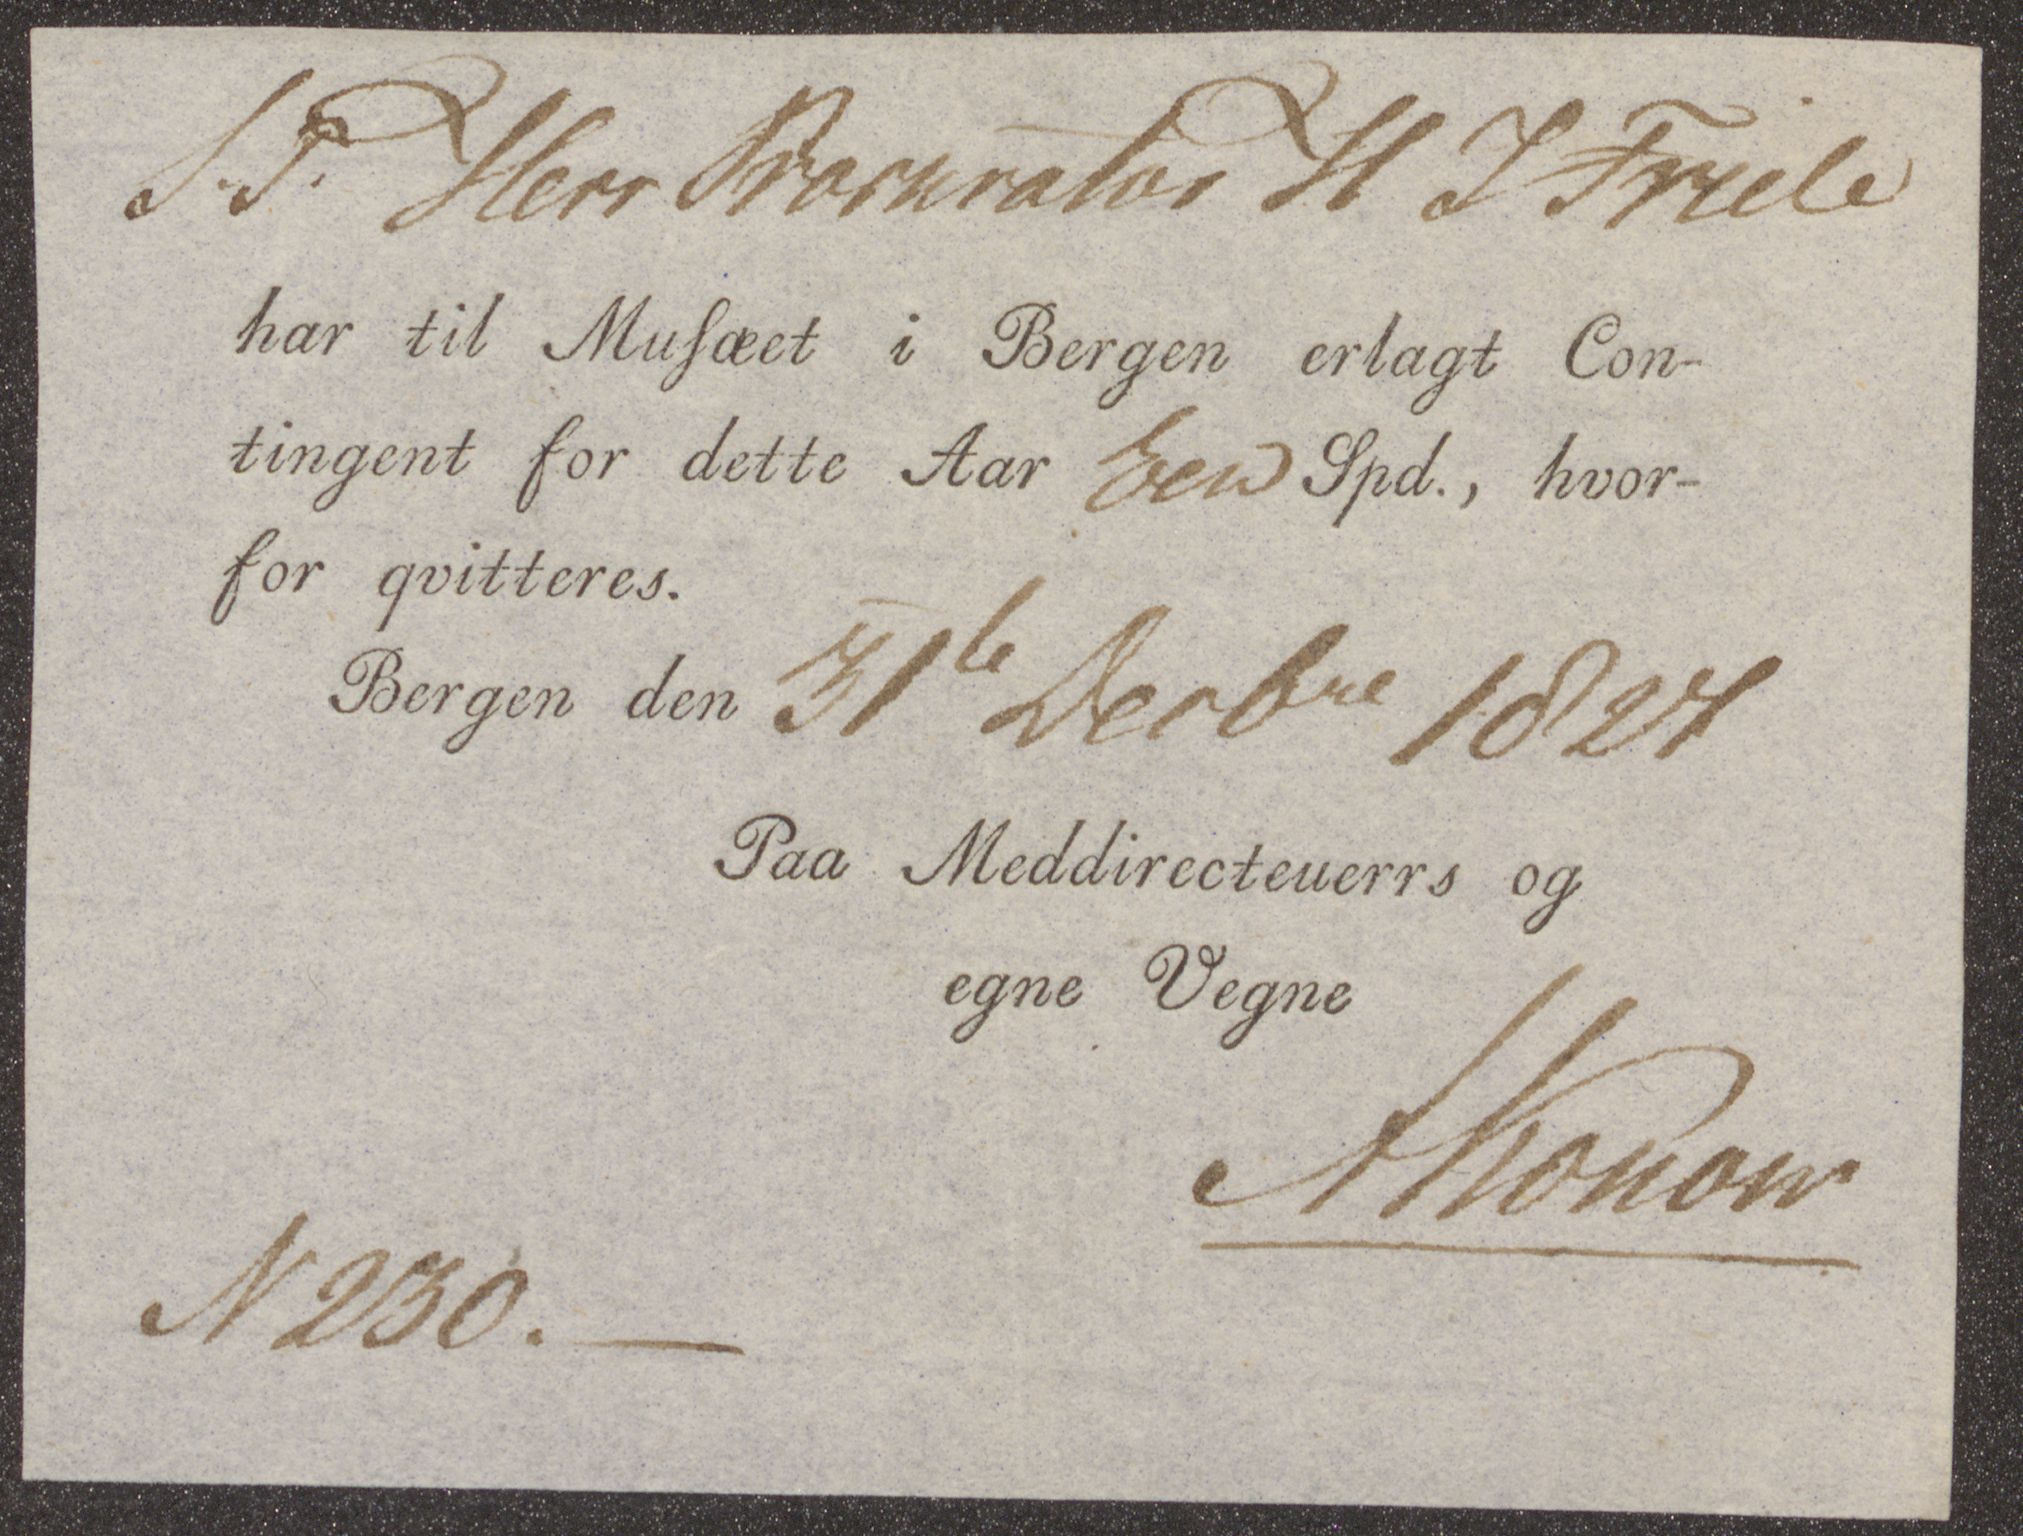 S. T. Herr Procurator H J Friele
har til Muſæet i Bergen erlagt Con-
tingent for dette Aar Een Spd., hvor-
for qvitteres.
Bergen den 31te Decbre 1827
Paa Meddirecteuerrs og
egne Vegne
AKonow
N 230. —